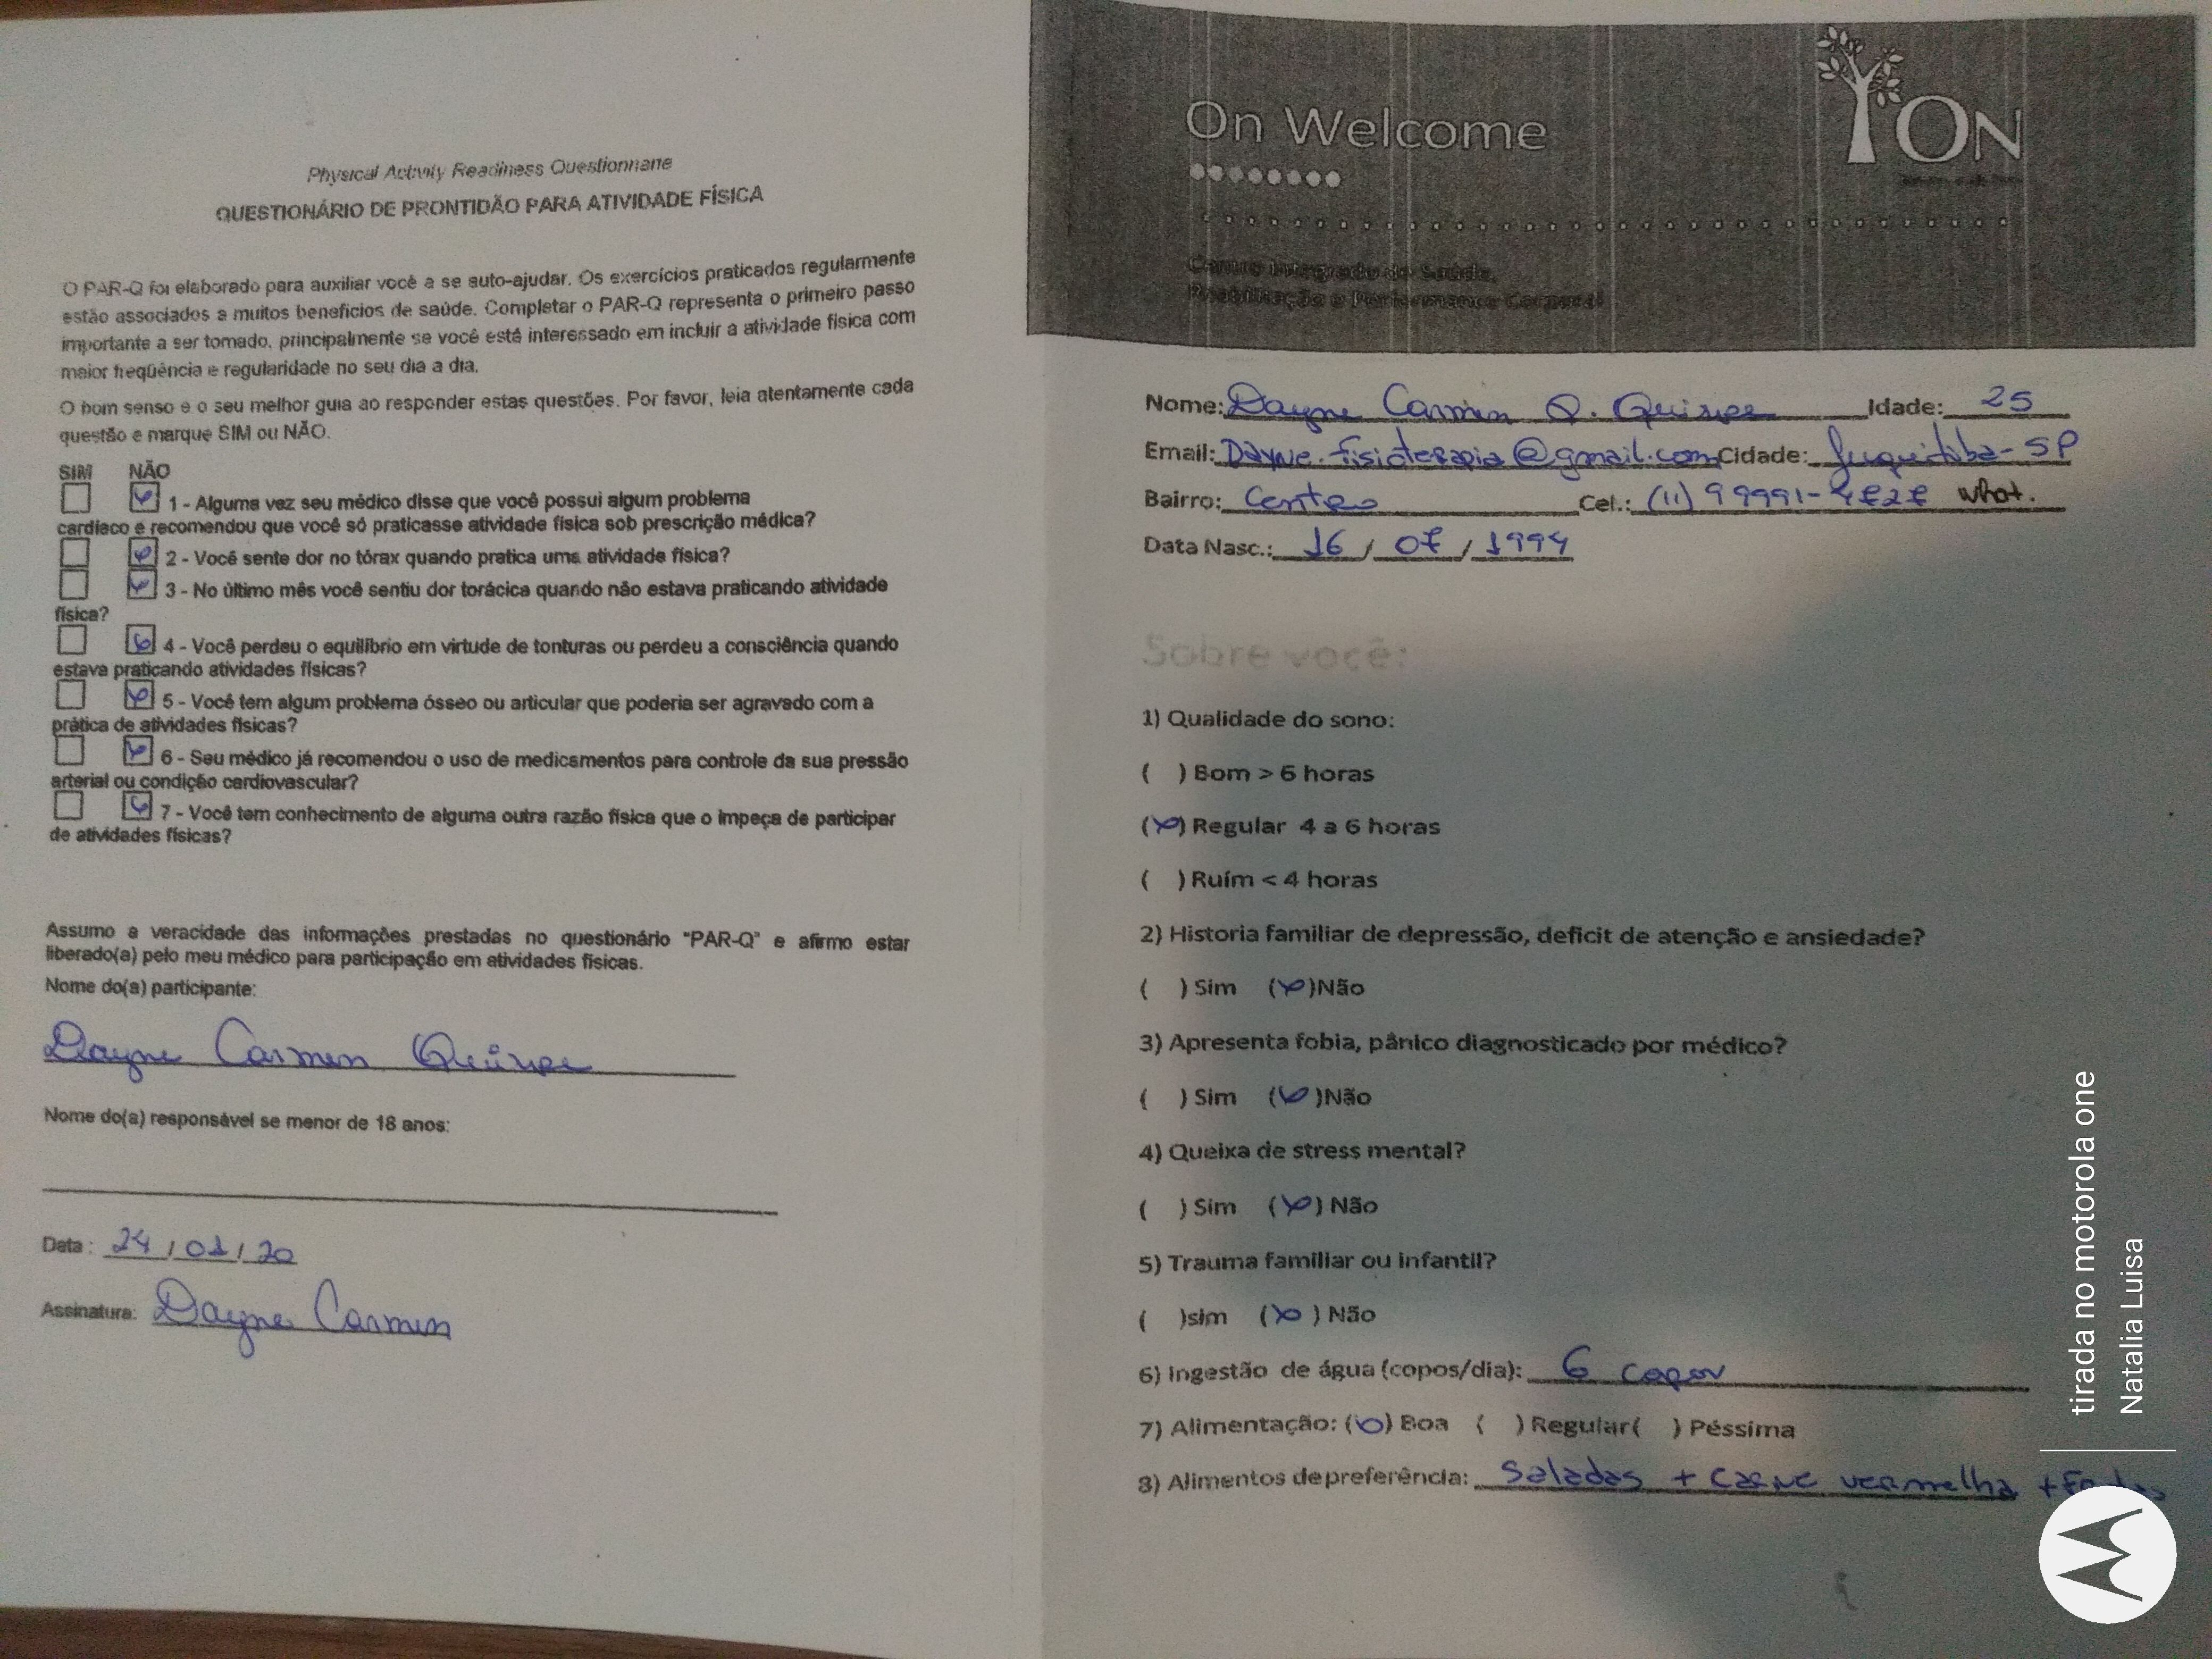 Physical Activity Readiness Questionnaire
QUESTIONÁRIO DE PRONTIDÃO PARA ATIVIDADE FÍSICA
O PAR-Q foi elaborado para auxiliar você a se auto-ajudar. Os exercícios praticados regularmente
estão associados a muitos benefícios de saúde. Completar o PAR-Q representa o primeiro passo
importante a ser tomado, principalmente se você está interessado em incluir a atividade física com
maior freqüência e regularidade no seu dia a dia.
O bom senso e o seu melhor guia ao responder estas questões. Por favor, leia atentamente cada
questão e marque SIM ou NÃO.
SIM NÃO
1 - Alguma vez seu médico disse que você possui algum problema
cardíaco e recomendou que você só praticasse atividade física sob prescrição médica?
2 - Você sente dor no tórax quando pratica uma atividade física?
3 - No último mês você sentiu dor torácica quando não estava praticando atividade
física?
4 - Você perdeu o equilíbrio em virtude de tonturas ou perdeu a consciência quando
estava praticando atividades físicas?
5 - Você tem algum problema ósseo ou articular que poderia ser agravado com a
prática de atividades físicas?
6 - Seu médico já recomendou o uso de medicamentos para controle da sua pressão
arterial ou condição cardiovascular?
7 - Você tem conhecimento de alguma outra razão física que o impeça de participar
de atividades físicas?
Assumo a veracidade das informações prestadas no questionário "PAR-Q" e afirmo estar
liberado(a) pelo meu médico para participação em atividades físicas.
Nome do(a) participante:
Dayne Carmen Quispe
Nome do(a) responsável se menor de 18 anos:
Data: 24/01/20
Assinatura: Dayne Carmen
On Welcome
ON
Centro Integrado de Saúde,
Reabilitação e Performance Corporal
Nome: Dayne Carmen Q. Quispe Idade: 25
Email: Dayne.fisioterapia@gmail.com Cidade: Juquitiba-SP
Bairro: Centro Cel.: (11) 99991-4727 what.
Data Nasc.: 16/07/1994
Sobre você:
1) Qualidade do sono:
( ) Bom > 6 horas
(x) Regular 4 a 6 horas
( ) Ruím < 4 horas
2) Historia familiar de depressão, deficit de atenção e ansiedade?
( ) Sim (x)Não
3) Apresenta fobia, pânico diagnosticado por médico?
( ) Sim (x)Não
4) Queixa de stress mental?
( ) Sim (x) Não
5) Trauma familiar ou infantil?
( )sim (x) Não
6) Ingestão de água (copos/dia): 6 copos
7) Alimentação: (x) Boa ( ) Regular( ) Péssima
8) Alimentos de preferência: Saladas + carne vermelha +
tirada no motorola one
Natalia Luisa